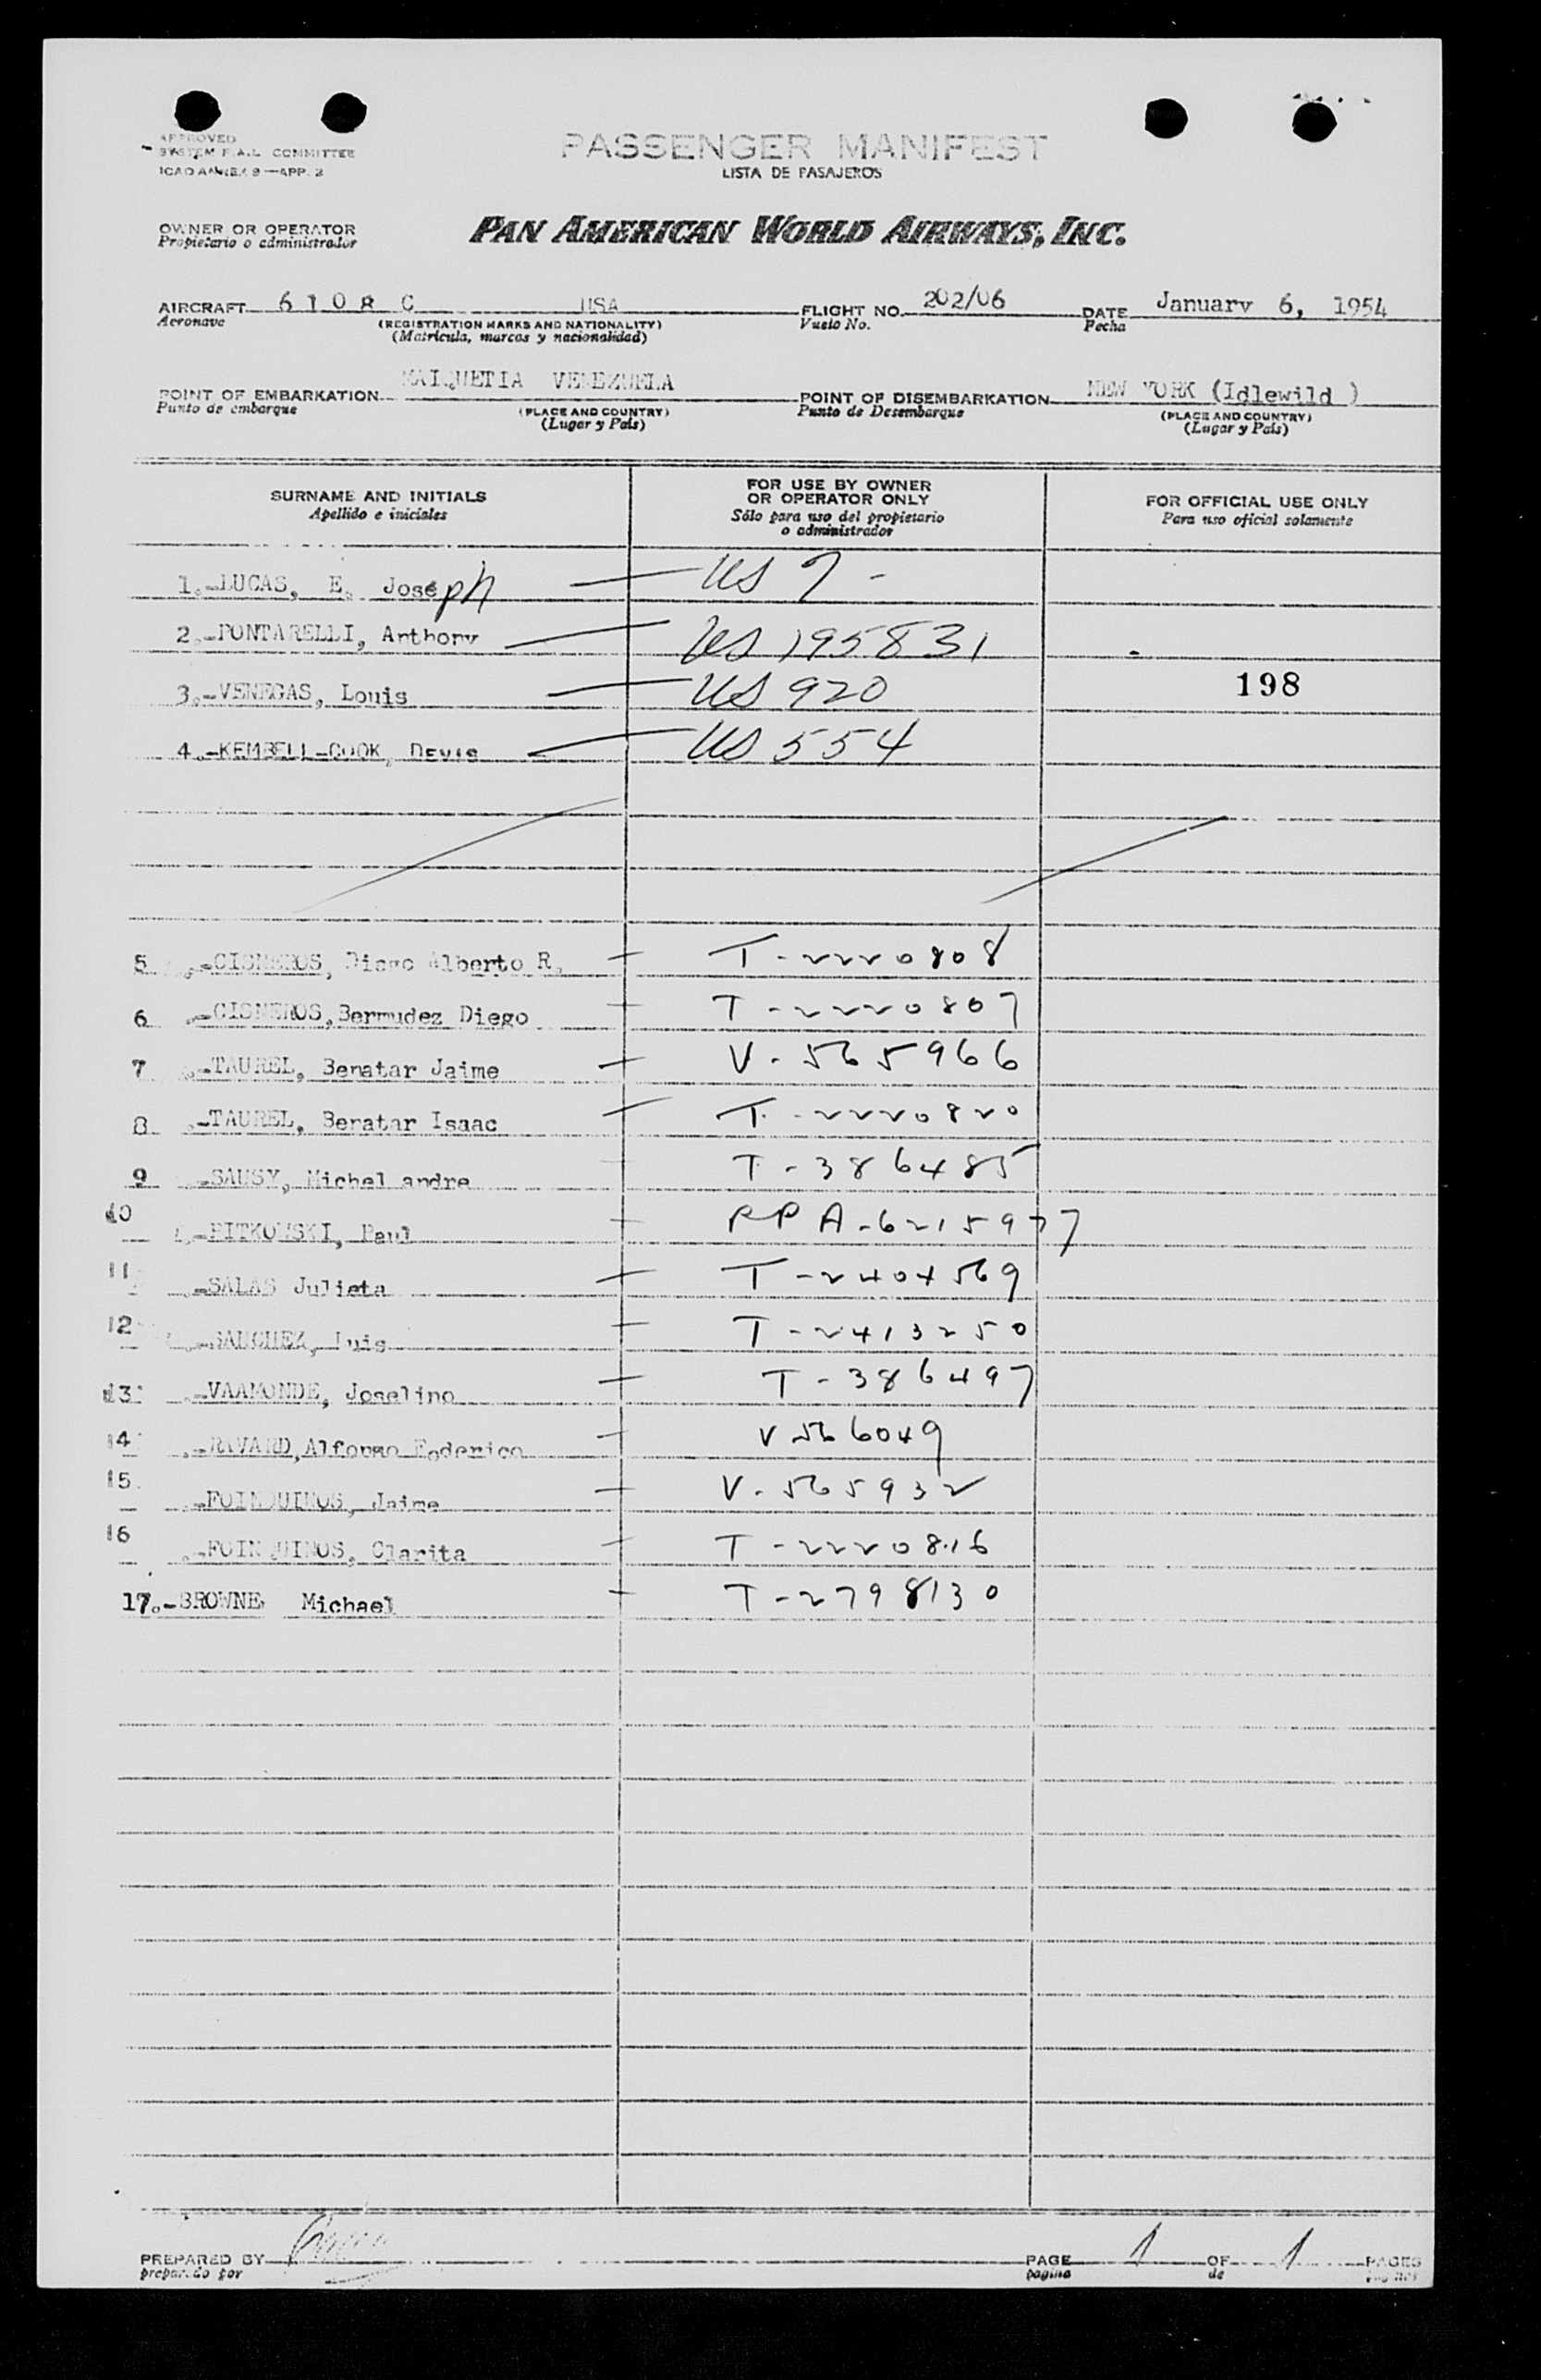 APPROVED
SYSTEM F.A.L. COMMITTEE
ICAO ANNEX 9—APP. 2
PASSENGER MANIFEST
LISTA DE PASAJEROS
OWNER OR OPERATOR
Propietario o administrador
PAN AMERICAN WORLD AIRWAYS, INC.
AIRCRAFT 6108 C USA FLIGHT NO. 202/06 DATE January 6, 1954
Aeronave (REGISTRATION MARKS AND NATIONALITY) Vuelo No. Fecha
(Matrícula, marcas y nacionalidad)
POINT OF EMBARKATION MAIQUETIA VENEZUELA POINT OF DISEMBARKATION NEW YORK (Idlewild )
Punto de embarque (PLACE AND COUNTRY) Punto de Desembarque (PLACE AND COUNTRY)
(Lugar y País) (Lugar y País)
SURNAME AND INITIALS
Apellido e iniciales
FOR USE BY OWNER
OR OPERATOR ONLY
Sólo para uso del propietario
o administrador
FOR OFFICIAL USE ONLY
Para uso oficial solamente
1.-LUCAS, E. Joseph — US 7 -
2.-PONTARELLI, Anthony — US 195831
3.-VENEGAS, Louis — US 920
198
4.-KEMBELL-COOK, — US 554
5 .-CISNEROS, Diego Alberto R. — T-2220808
6 .-CISNEROS, Bermudez Diego — T-2220807
7 .-TAUREL, Benatar Jaime — V-565966
8 .-TAUREL, Benatar Isaac — T-2220820
9 -SAUSY, Michel andre — T-386485
10 .-PITKOWSKI, Paul — PPA-6215977
11 .-SALAS Julieta — T-2404569
12 .-SANCHEZ, Luis — T-2413250
13 .-VAAMONDE, Joselino — T-386497
14 .-RAVARD, Alfonso — V 566049
15 .-FOINQUINOS, Jaime — V-565932
16 .-FOINQUINOS, Clarita — T-2220816
17.-BROWNE Michael — T-2798130
PREPARED BY PAGE 1 OF 1 PAGES
preparado por pagina de paginas